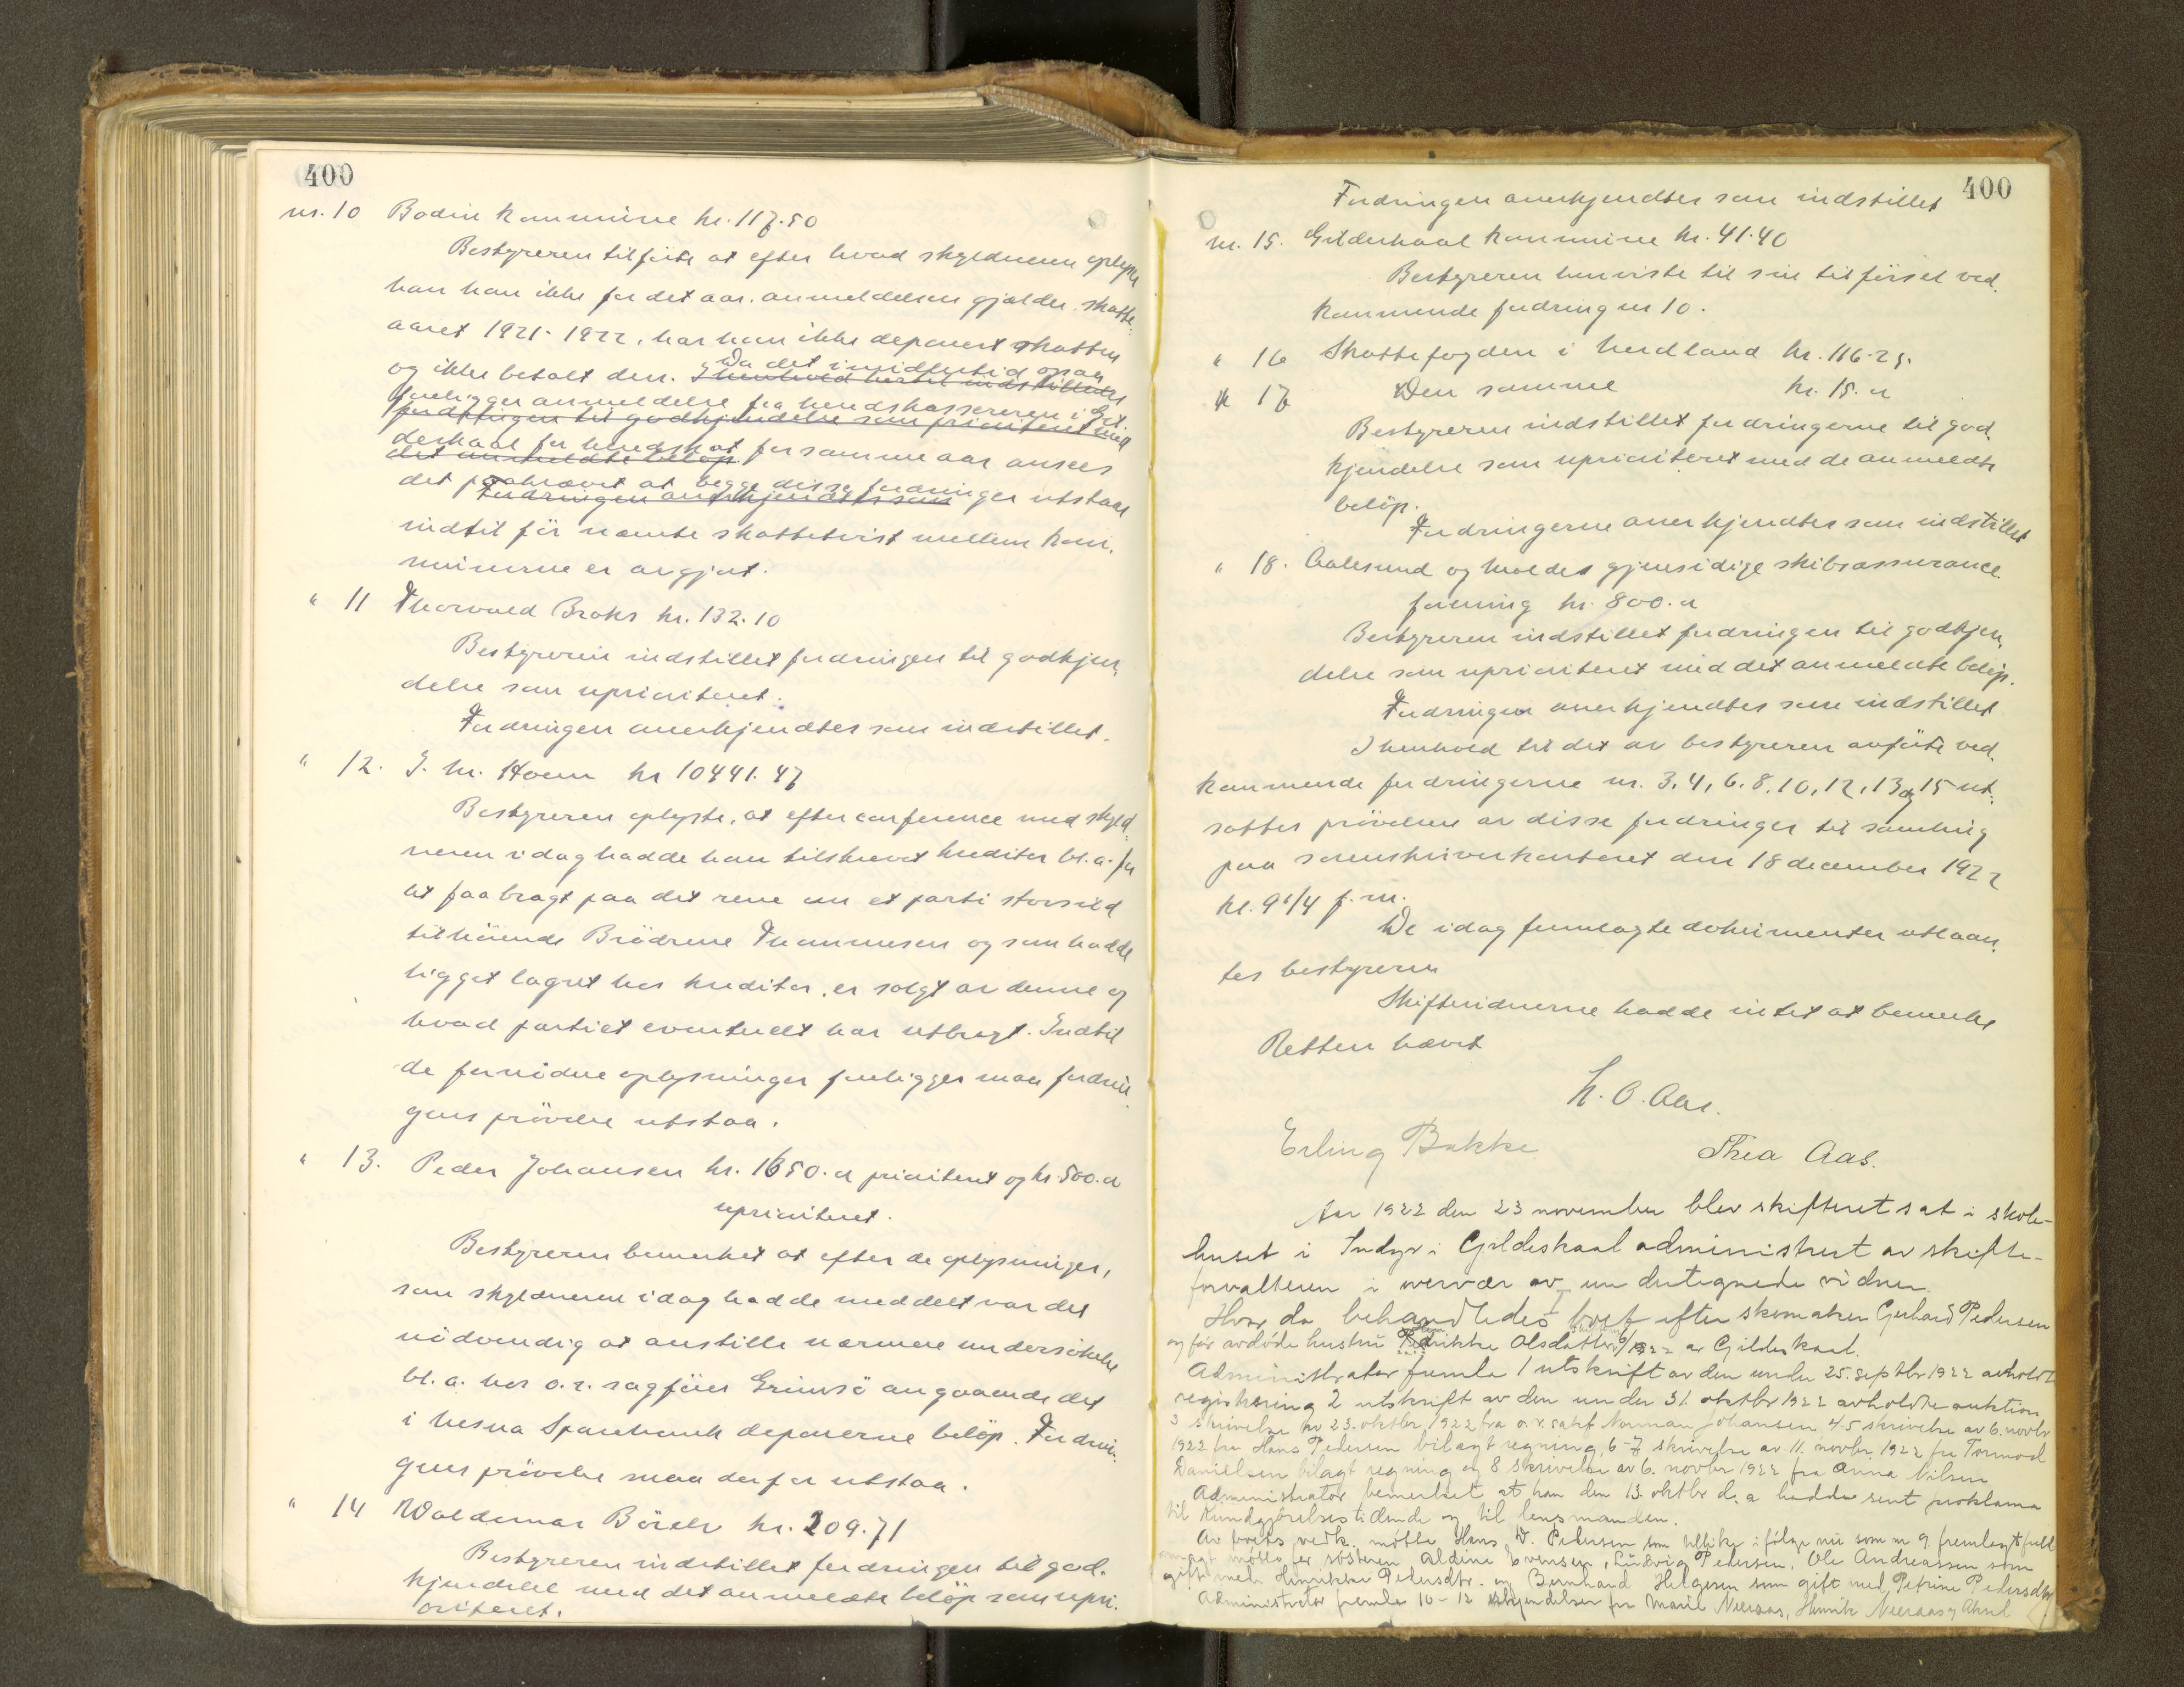 400
nr. 10 Bodin kommune kr. 117.50
Bestyreren tilførte at efter hvad skyldneren oplyste
han kan ikke for det aar anmeldelsen gjælder, skatte-
aaret 1921-1922, har han ikke deponert skatten
og ikke betalt den. Da det imidlertid ogsaa
I henhold hertil indstilledes
foreligger anmeldelse fra herredskassereren i Gil-
fordringen til godkjendelse som prioriteret med
deskaal for herredskat for samme aar ansees
det anmeldte beløp.
det paakrævet at begge disse fordringer utstaar
Fordringen anerkjendtes som
indtil før nævnte skattetvist mellem kom-
munerne er avgjort.
" 11 Thorvald Broks kr. 132.10
Bestyreren indstillet fordringen til godkjen-
delse som uprioritert.
Fordringen anerkjendtes som indstillet.
" 12. J. M. Hoem kr 10441.47
Bestyreren oplyste, at efter conference med skyld-
neren idag hadde han tilskrevet kreditor bl.a. for
at faa bragt paa det rene om et parti storsild
tilhørende Brødrene Thommesen og som hadde
ligget lagret hos kreditor, er solgt av denne og
hvad partiet eventuelt har utbragt. Indtil
de fornødne oplysninger foreligger maa fordrin-
gens prøvelse utstaa.
" 13. Peder Johansen kr. 1650.00 prioritert og kr. 500.00
uprioritert.
Bestyreren bemerket at efter de oplysninger,
som skyldneren idag hadde meddelt var det
nødvendig at anstille nærmere undersøkelse
bl. a. hos o.r. sagfører Grimsø angaaende det
i Nesna Sparebank deponerte beløp. Fordrin-
gens prøvelse maa derfor utstaa.
" 14 Waldemar Børelv kr. 209.71
Bestyreren indstillet fordringen til god-
kjendelse med det anmeldte beløp som upri-
oritert.
400
Fordringen anerkjendtes som indstillet
nr. 15. Gildeskaal kommune kr. 41.40
Bestyreren henviste til sin tilførsel ved-
kommende fordring nr 10.
" 16 Skattefogden i Nordland kr. 116.25.
" 17 Den samme kr. 15.00
Bestyreren indstillet fordringerne til god-
kjendelse som uprioritert med de anmeldte
beløp.
Fordringerne anerkjendtes som indstillet
" 18. Aalesund og Moldes gjensidige skibsassurance-
forening kr. 800.00
Bestyreren indstillet fordringen til godkjen-
delse som uprioritert med det anmeldte beløp.
Fordringen anerkjendtes som indstillet
I henhold til det av bestyreren anførte ved-
kommende fordringerne nr. 3, 4, 6, 8, 10, 12, 13 og 15 ut-
sattes prøvelsen av disse fordringer til samling
paa sorenskriverkontoret den 18 december 1922
kl. 9 1/4 f.m.
De idag fremlagte dokumenter utlaan-
tes bestyreren
Skiftevidnerne hadde intet at bemerke
Retten hævet
K. O. Aas.
Erling Bakke Thea Aas.
Aar 1922 den 23 november blev skifteret sat i skole-
huset i Indyr i Gildeskaal administrert av skifte-
forvalteren i overvær av undertegnede vidner.
Hvor da behandledes boet efter skomaker Gerhard Pedersen
og før avdøde hustru Olsdatter 1922 av Gildeskaal.
Administrator fremla 1 utskrift av den under 25. septbr 1922 avholdt
registrering 2 utskrift av den under 31. oktbr 1922 avholdte auktion
3 skrivelse av 23. oktbr. 1922 fra o.r. sakf Norman Johansen, 4/5 skrivelse av 6. novbr
1922 fra Hans Pedersen bilagt regning, 6-7 skrivelse av 11. novbr. 1922 fra Tormod
Danielsen bilagt regning og 8 skrivelse av 6. novbr 1922 fra Anna Nilsen
Administrator bemerket at han den 13 oktbr d. a hadde sent proklama
til Kundgjørelsestidende og til lensmanden.
Av boets vedk. møtte Hans D. Pedersen som tillike i følge nu som nr 9 fremlagt fuld-
magt møtte for søsteren Aldine Evensen, Ludvig Pedersen, Ole Andreassen som
gift med Henrikke Pedersdtr. og Bernhard Helgesen som gift med Petrine Pedersdtr
Administrator fremla 10-12 for Marie Neeraas, Henrik Neeraas og Aksel